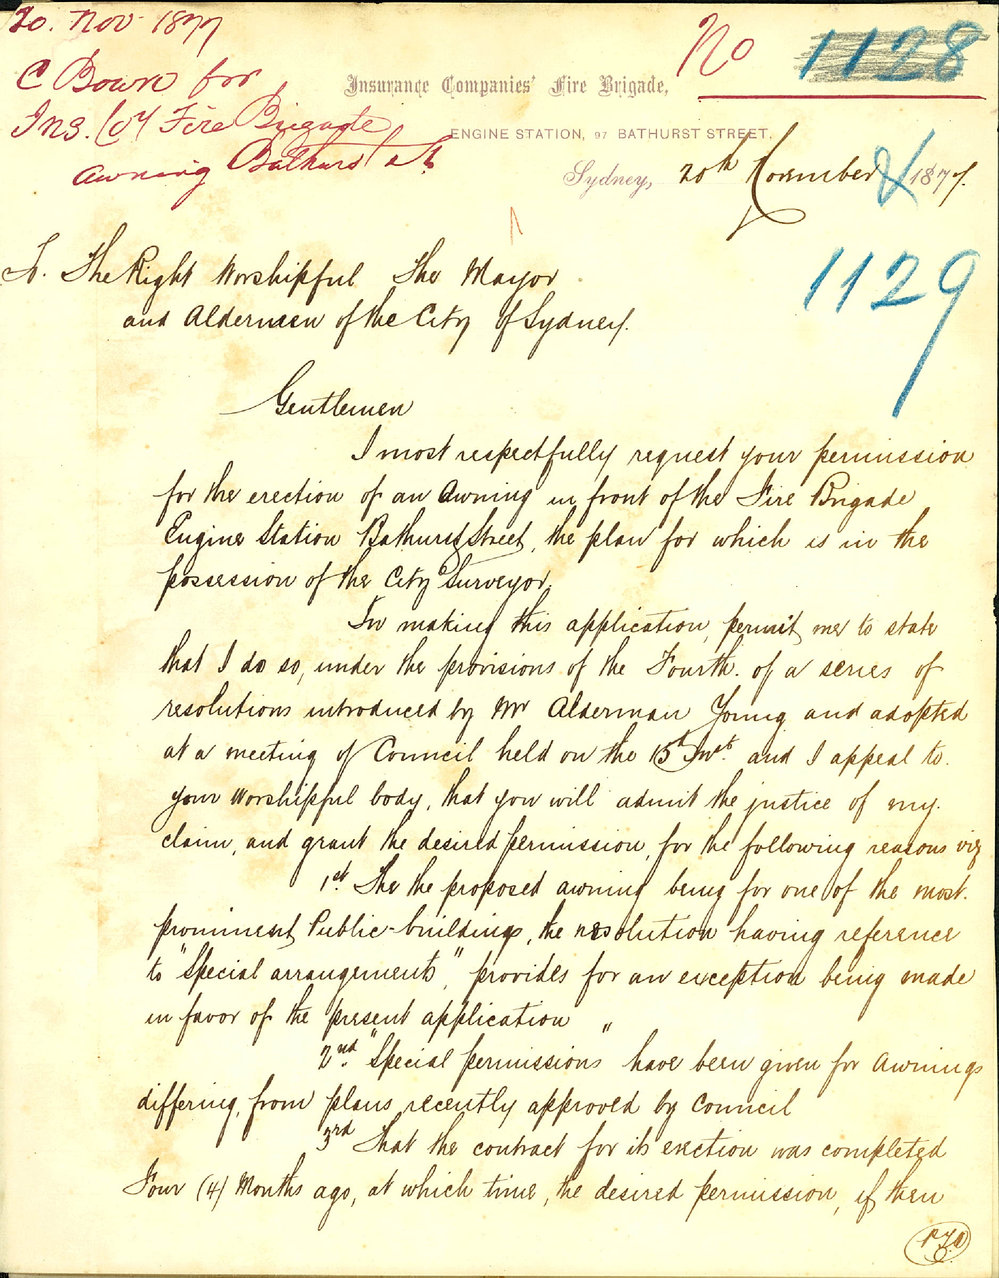 20. Nov. 1877
C Bown for
Ins. Coy Fire Brigade
Awning Bathurst St.
No 1128
Insurance Companies' Fire Brigade,
ENGINE STATION, 97 BATHURST STREET.
Sydney, 20th November 1877.
1129
To. The Right Worshipful The Mayor
and Aldermen of the City of Sydney.
Gentlemen
I most respectfully request your permission
for the erection of an Awning in front of the Fire Brigade
Engine Station Bathurst Street, the plan for which is in the
possession of the City Surveyor.
In making this application, permit me to state
that I do so, under the provisions of the Fourth. of a series of
resolutions introduced by Mr Alderman Young and adopted
at a meeting of Council held on the 15th Inst. and I appeal to.
your Worshipful body, that you will admit the justice of my.
claim, and grant the desired permission, for the following reasons viz
1st. The the proposed awning being for one of the most.
prominent Public-buildings, the resolution having reference
to "Special arrangements", provides for an exception being made
in favor of the present application
2nd. "Special permissions" have been given for Awnings
differing, from plans recently approved by Council
3rd That the contract for its erection was completed
Four (4) Months ago, at which time, the desired permission, if then
P.T.O.